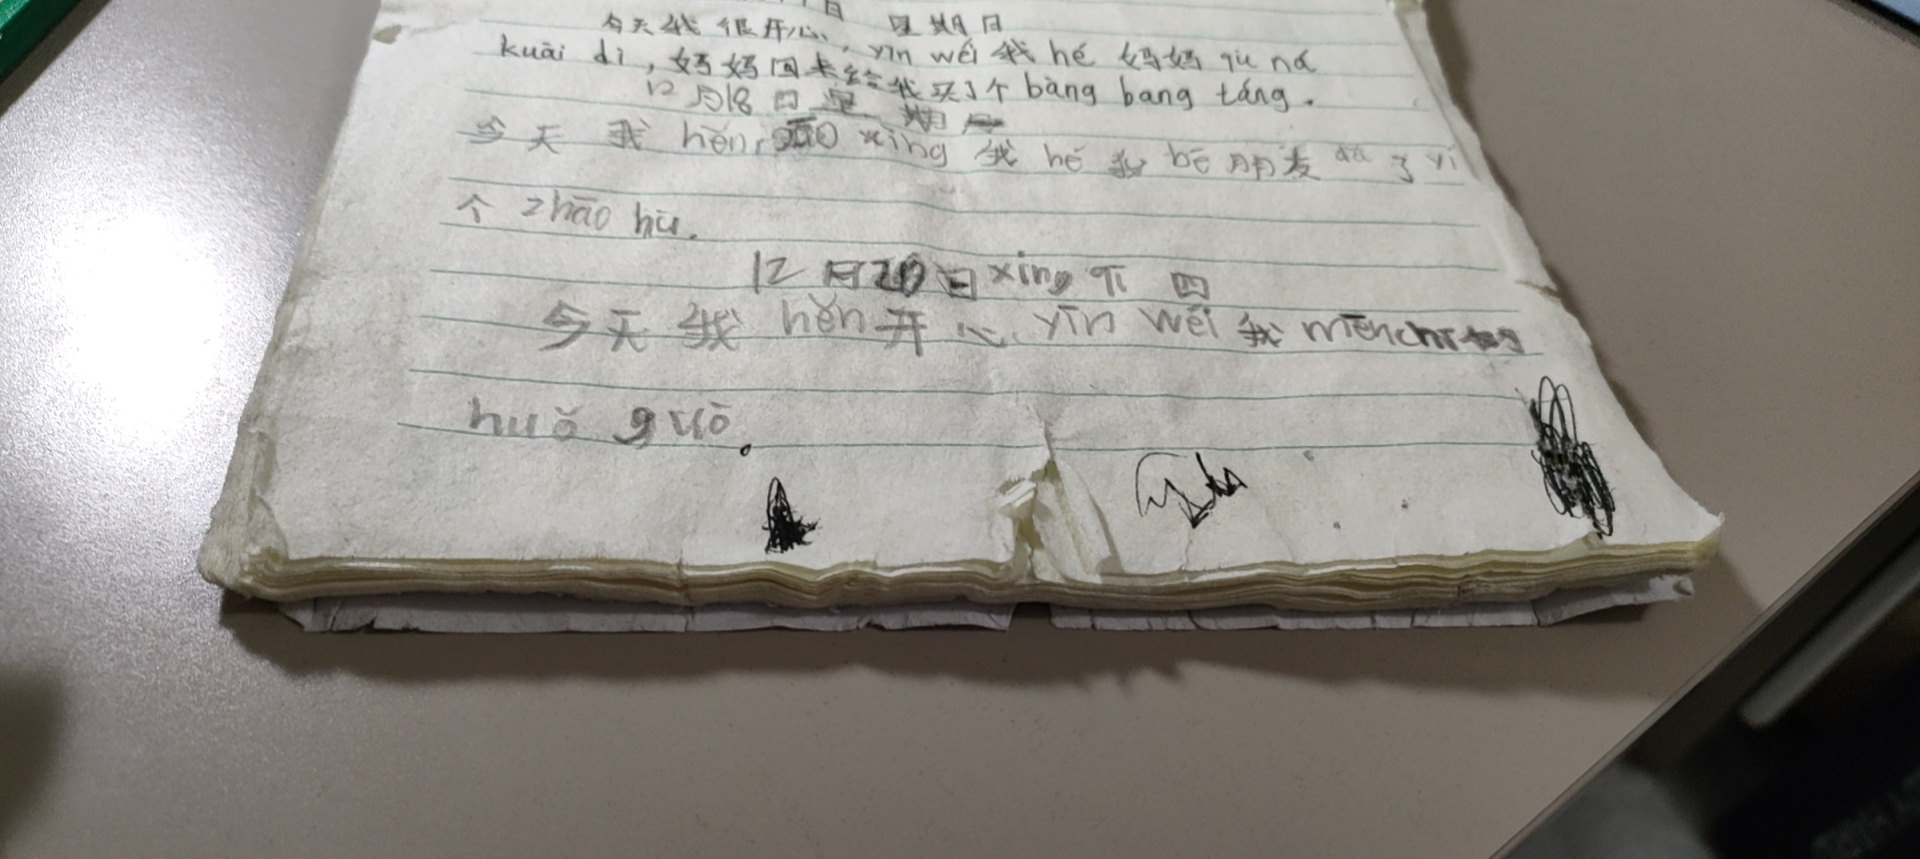 日 星期日
今天我很开心，yīn wéi 我 hé 妈妈 qù ná
kuāi dì，妈妈回来给我买了个 bàng bang táng.
12月18日 星期
今天我 hěn gāo xìng 我 hé 我 朋友 了 yī
个 zhāo hū.
12月20日 xīng qī 四
今天我 hěn 开心 yīn wéi 我 mēn chī
huǒ guō.